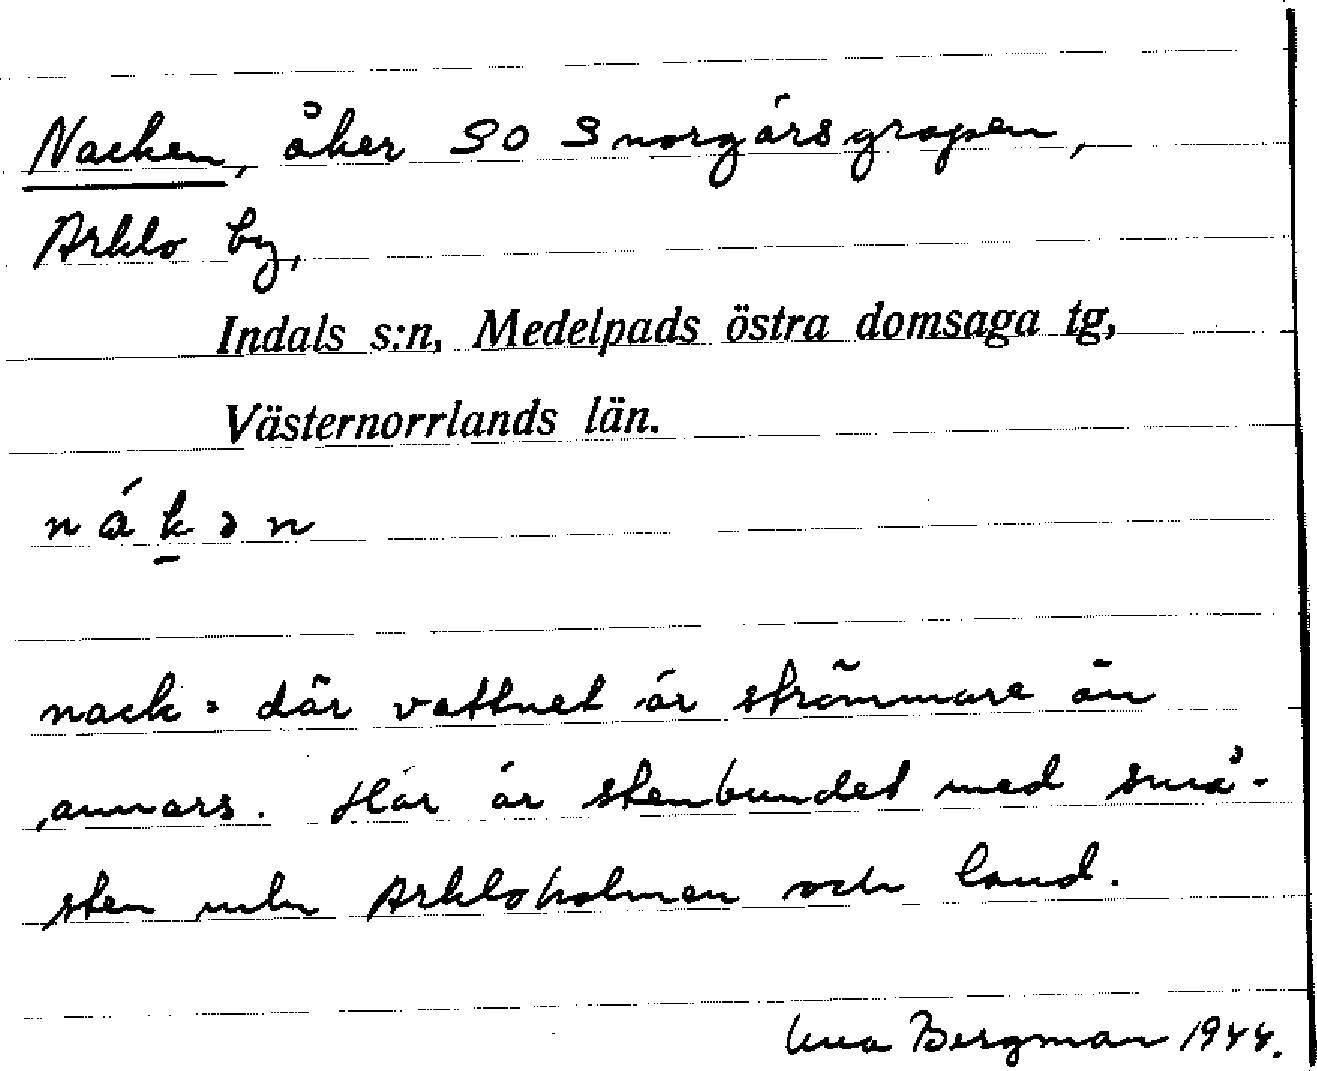 Nacken, åker SO Snorgårsgropen,
Arklo by,
Indals s:n, Medelpads östra domsaga tg,
Västernorrlands län.
nák̲ən
nack = där vattnet är strömmare än
annars. Här är stenbundet med små-
sten mln Arkloholmen och land.
Bergman 1944.